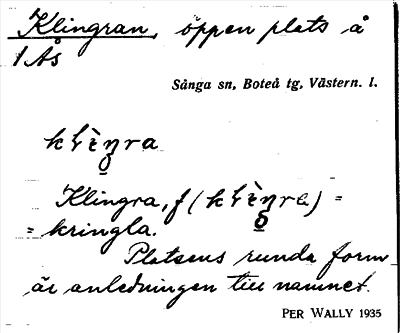 Klingran, öppen plats å
1 Ås
Sånga sn, Boteå tg, Västern. l.
Klingra, f ( ) =
= kringla.
Platsens runda form
är anledningen till namnet.
PER WALLY 1935